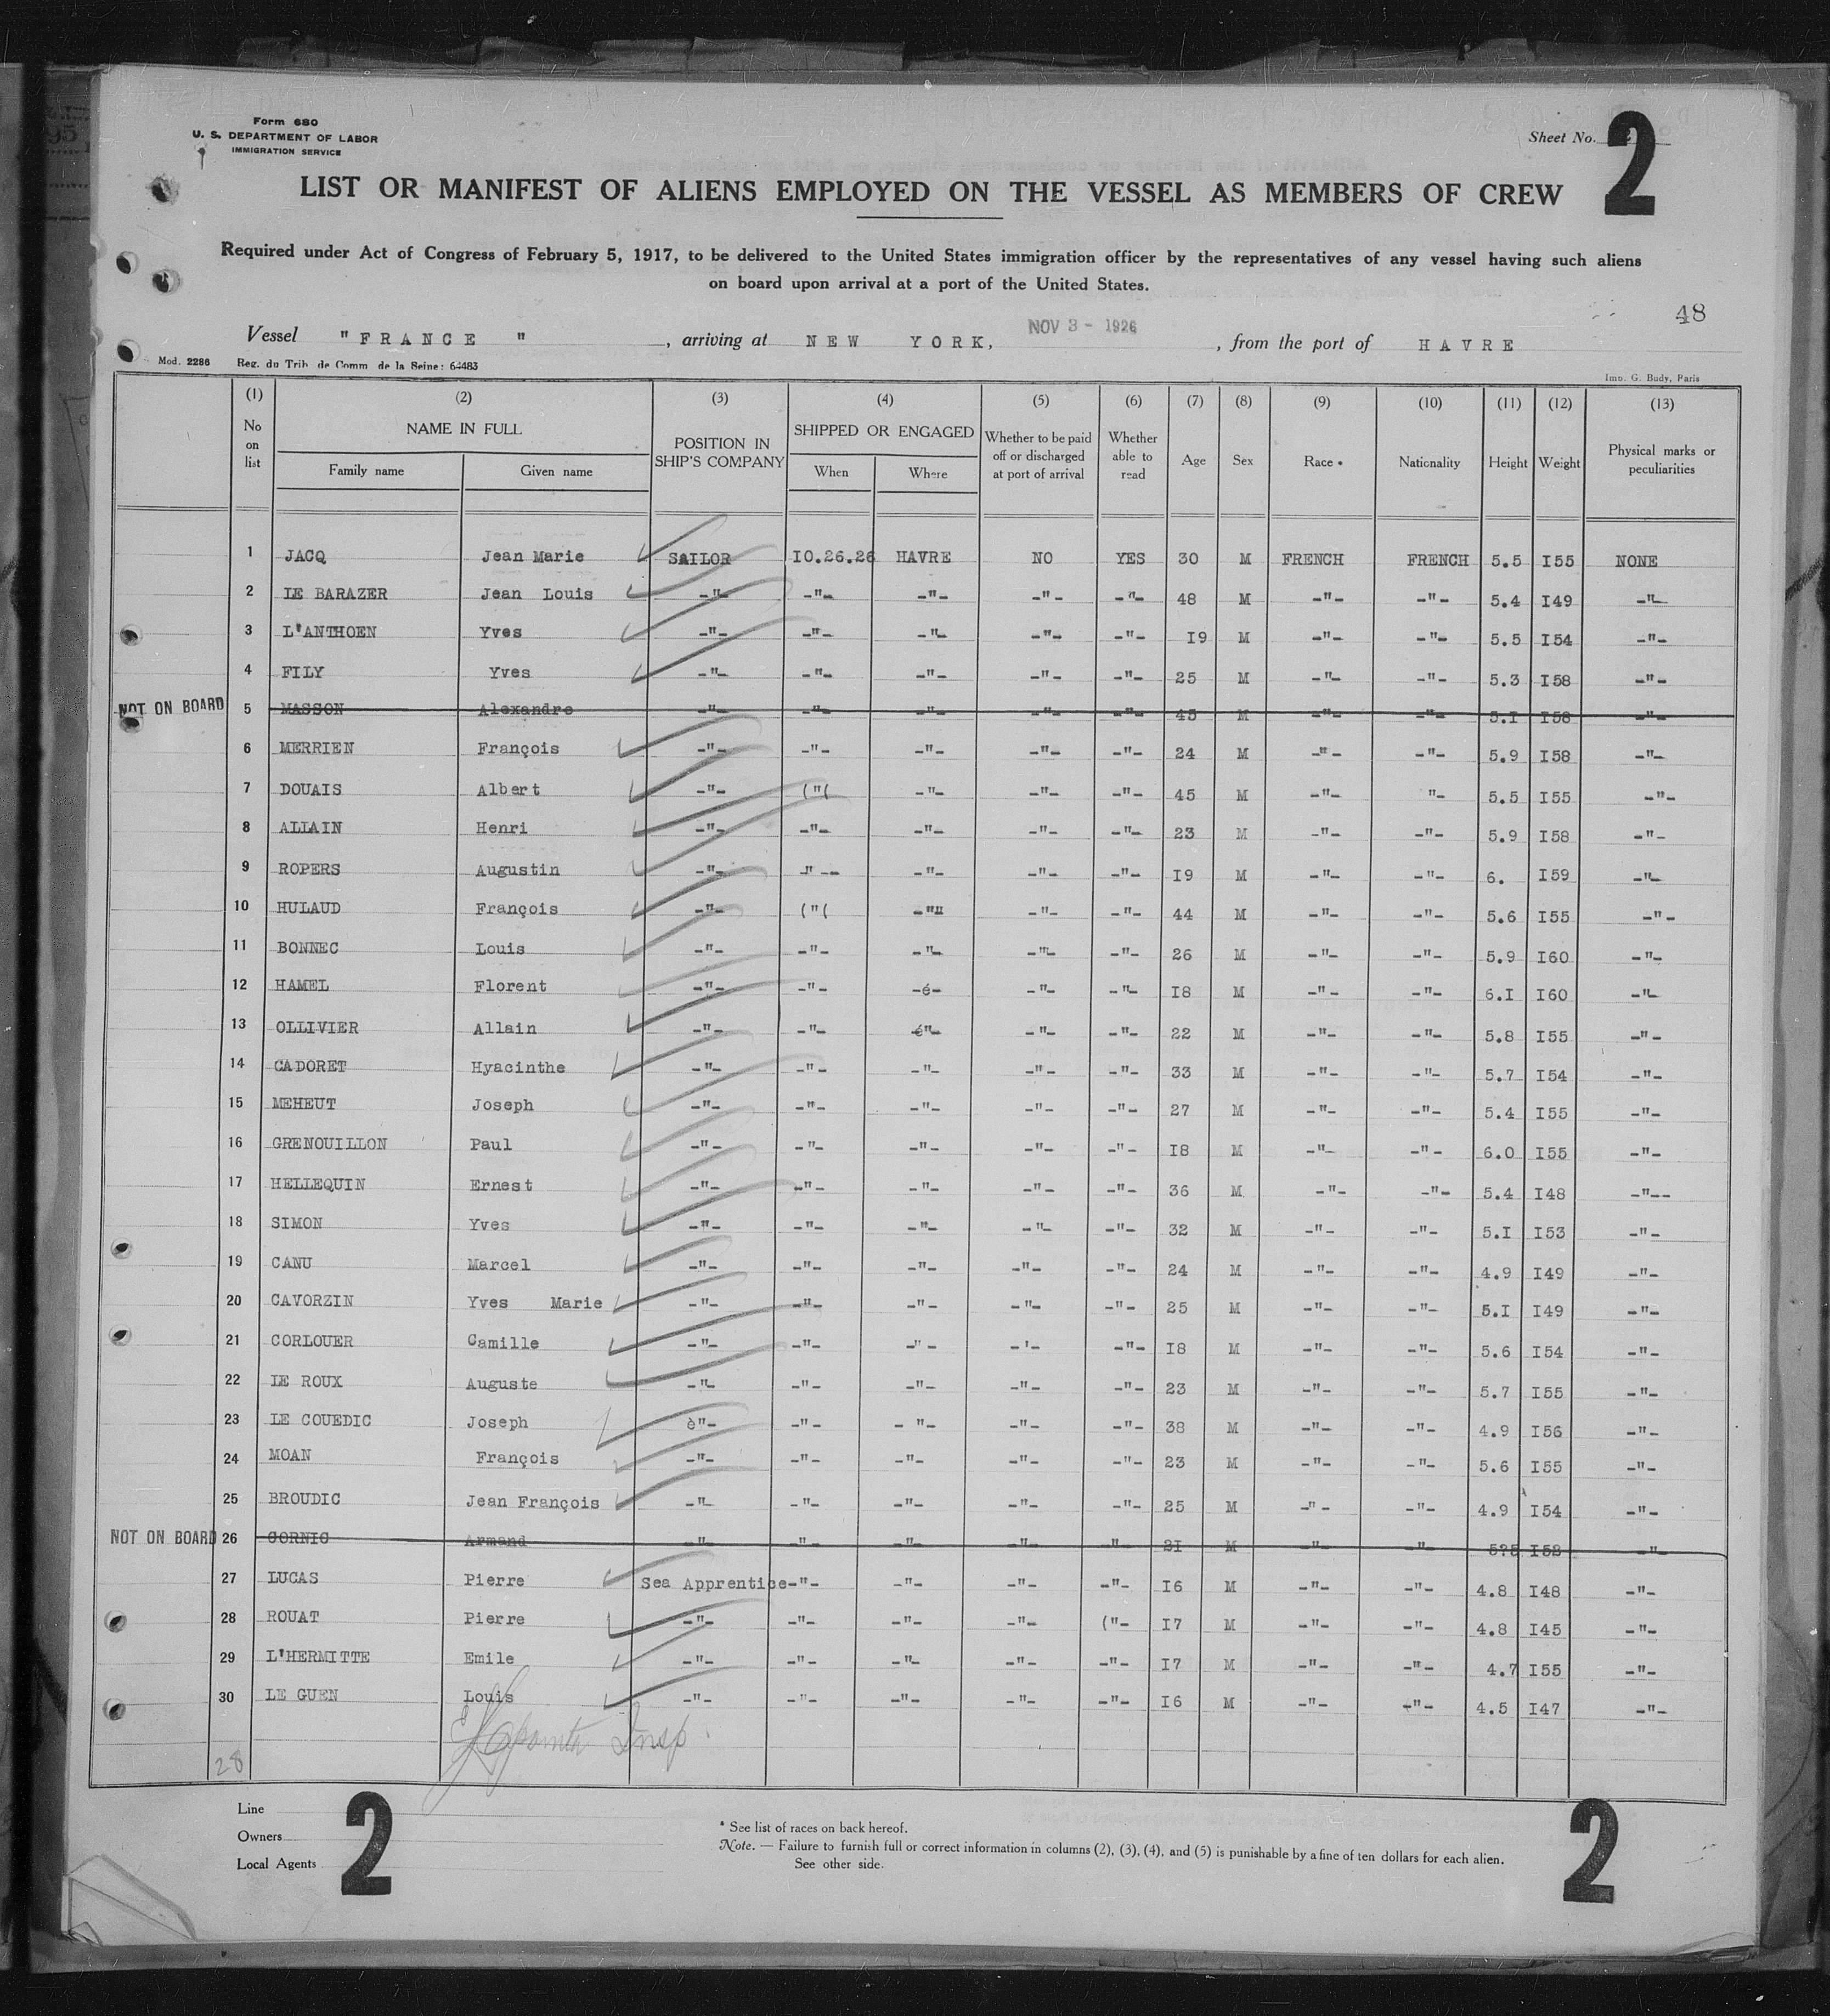 Form 680
U. S. DEPARTMENT OF LABOR
IMMIGRATION SERVICE
Sheet No. 2
LIST OR MANIFEST OF ALIENS EMPLOYED ON THE VESSEL AS MEMBERS OF CREW
Required under Act of Congress of February 5, 1917, to be delivered to the United States immigration officer by the representatives of any vessel having such aliens
on board upon arrival at a port of the United States.
48
Vessel "FRANCE" , arriving at NEW YORK, NOV 3 - 1926 , from the port of HAVRE
Mod. 2286 Reg. du Trib. de Comm de la Seine: 64483 Imp. G. Budy, Paris
(1) (2) (3) (4) (5) (6) (7) (8) (9) (10) (11) (12) (13)
No on list NAME IN FULL Family name Given name POSITION IN SHIP'S COMPANY SHIPPED OR ENGAGED When Where Whether to be paid off or discharged at port of arrival Whether able to read Age Sex Race * Nationality Height Weight Physical marks or peculiarities
1 JACQ Jean Marie SAILOR I0.26.26 HAVRE NO YES 30 M FRENCH FRENCH 5.5 I55 NONE
2 LE BARAZER Jean Louis -"- -"- -"- -"- -"- 48 M -"- -"- 5.4 I49 -"-
3 L'ANTHOEN Yves -"- -"- -"- -"- -"- I9 M -"- -"- 5.5 I54 -"-
4 FILY Yves -"- -"- -"- -"- -"- 25 M -"- -"- 5.3 I58 -"-
NOT ON BOARD 5 MASSON Alexandre -"- -"- -"- -"- -"- 45 M -"- -"- 5.I I58 -"-
6 MERRIEN François -"- -"- -"- -"- -"- 24 M -"- -"- 5.9 I58 -"-
7 DOUAIS Albert -"- ("( -"- -"- -"- 45 M -"- "- 5.5 I55 -"-
8 ALLAIN Henri -"- -"- -"- -"- -"- 23 M -"- -"- 5.9 I58 -"-
9 ROPERS Augustin -"- -" -- -"- -"- -"- I9 M -"- -"- 6. I59 -"-
10 HULAUD François -"- ("( -"" -"- -"- 44 M -"- -"- 5.6 I55 -"-
11 BONNEC Louis -"- -"- -"- -"- -"- 26 M -"- -"- 5.9 I60 -"-
12 HAMEL Florent -"- -"- -é- -"- -"- I8 M -"- -"- 6.I I60 -"-
13 OLLIVIER Allain -"- -"- é"- -"- -"- 22 M -"- -"- 5.8 I55 -"-
14 CADORET Hyacinthe -"- -"- -"- -"- -"- 33 M -"- -"- 5.7 I54 -"-
15 MEHEUT Joseph -"- -"- -"- -"- -"- 27 M -"- -"- 5.4 I55 -"-
16 GRENOUILLON Paul -"- -"- -"- -"- -"- I8 M -"- -"- 6.0 I55 -"-
17 HELLEQUIN Ernest -"- -"- -"- -"- -"- 36 M -"- -"- 5.4 I48 -"--
18 SIMON Yves -"- -"- -"- -"- -"- 32 M -"- -"- 5.I I53 -"-
19 CANU Marcel -"- -"- -"- -"- -"- 24 M -"- -"- 4.9 I49 -"-
20 CAVORZIN Yves Marie -"- -"- -"- -"- -"- 25 M -"- -"- 5.I I49 -"-
21 CORLOUER Camille -"- -"- -"- -'- -"- I8 M -"- -"- 5.6 I54 -"-
22 LE ROUX Auguste -"- -"- -"- -"- -"- 23 M -"- -"- 5.7 I55 -"-
23 LE COUEDIC Joseph è"- -"- - "- -"- -"- 38 M -"- -"- 4.9 I56 -"-
24 MOAN François -"- -"- -"- -"- -"- 23 M -"- -"- 5.6 I55 -"-
25 BROUDIC Jean François -"- -"- -"- -"- -"- 25 M -"- -"- 4.9 I54 -"-
NOT ON BOARD 26 CORNIC Armand -"- -"- -"- -"- -"- 2I M -"- -"- 5?5 I52 -"-
27 LUCAS Pierre Sea Apprentice -"- -"- -"- -"- I6 M -"- -"- 4.8 I48 -"-
28 ROUAT Pierre -"- -"- -"- -"- ("- I7 M -"- -"- 4.8 I45 -"-
29 L'HERMITTE Emile -"- -"- -"- -"- -"- I7 M -"- -"- 4.7 I55 -"-
30 LE GUEN Louis -"- -"- -"- -"- -"- I6 M -"- -"- 4.5 I47 -"-
Insp.
28
Line
Owners
Local Agents
* See list of races on back hereof.
Note. — Failure to furnish full or correct information in columns (2), (3), (4), and (5) is punishable by a fine of ten dollars for each alien.
See other side.
2
2
2